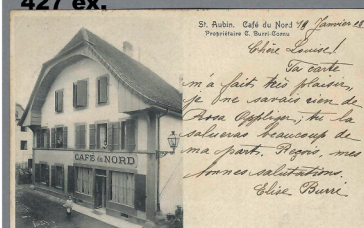 427 ex.
St. Aubin. Café du Nord 19 Janvier
Propriétaire C. Burri-Cornu
Chère Louise!
Ta carte
m'a fait très plaisir,
je ne savais rien de
Rosa Oppliger, tu la
salueras beaucoup de
ma part. Reçois, mes
bonnes salutations.
Elise Burri
CAFÉ du NORD